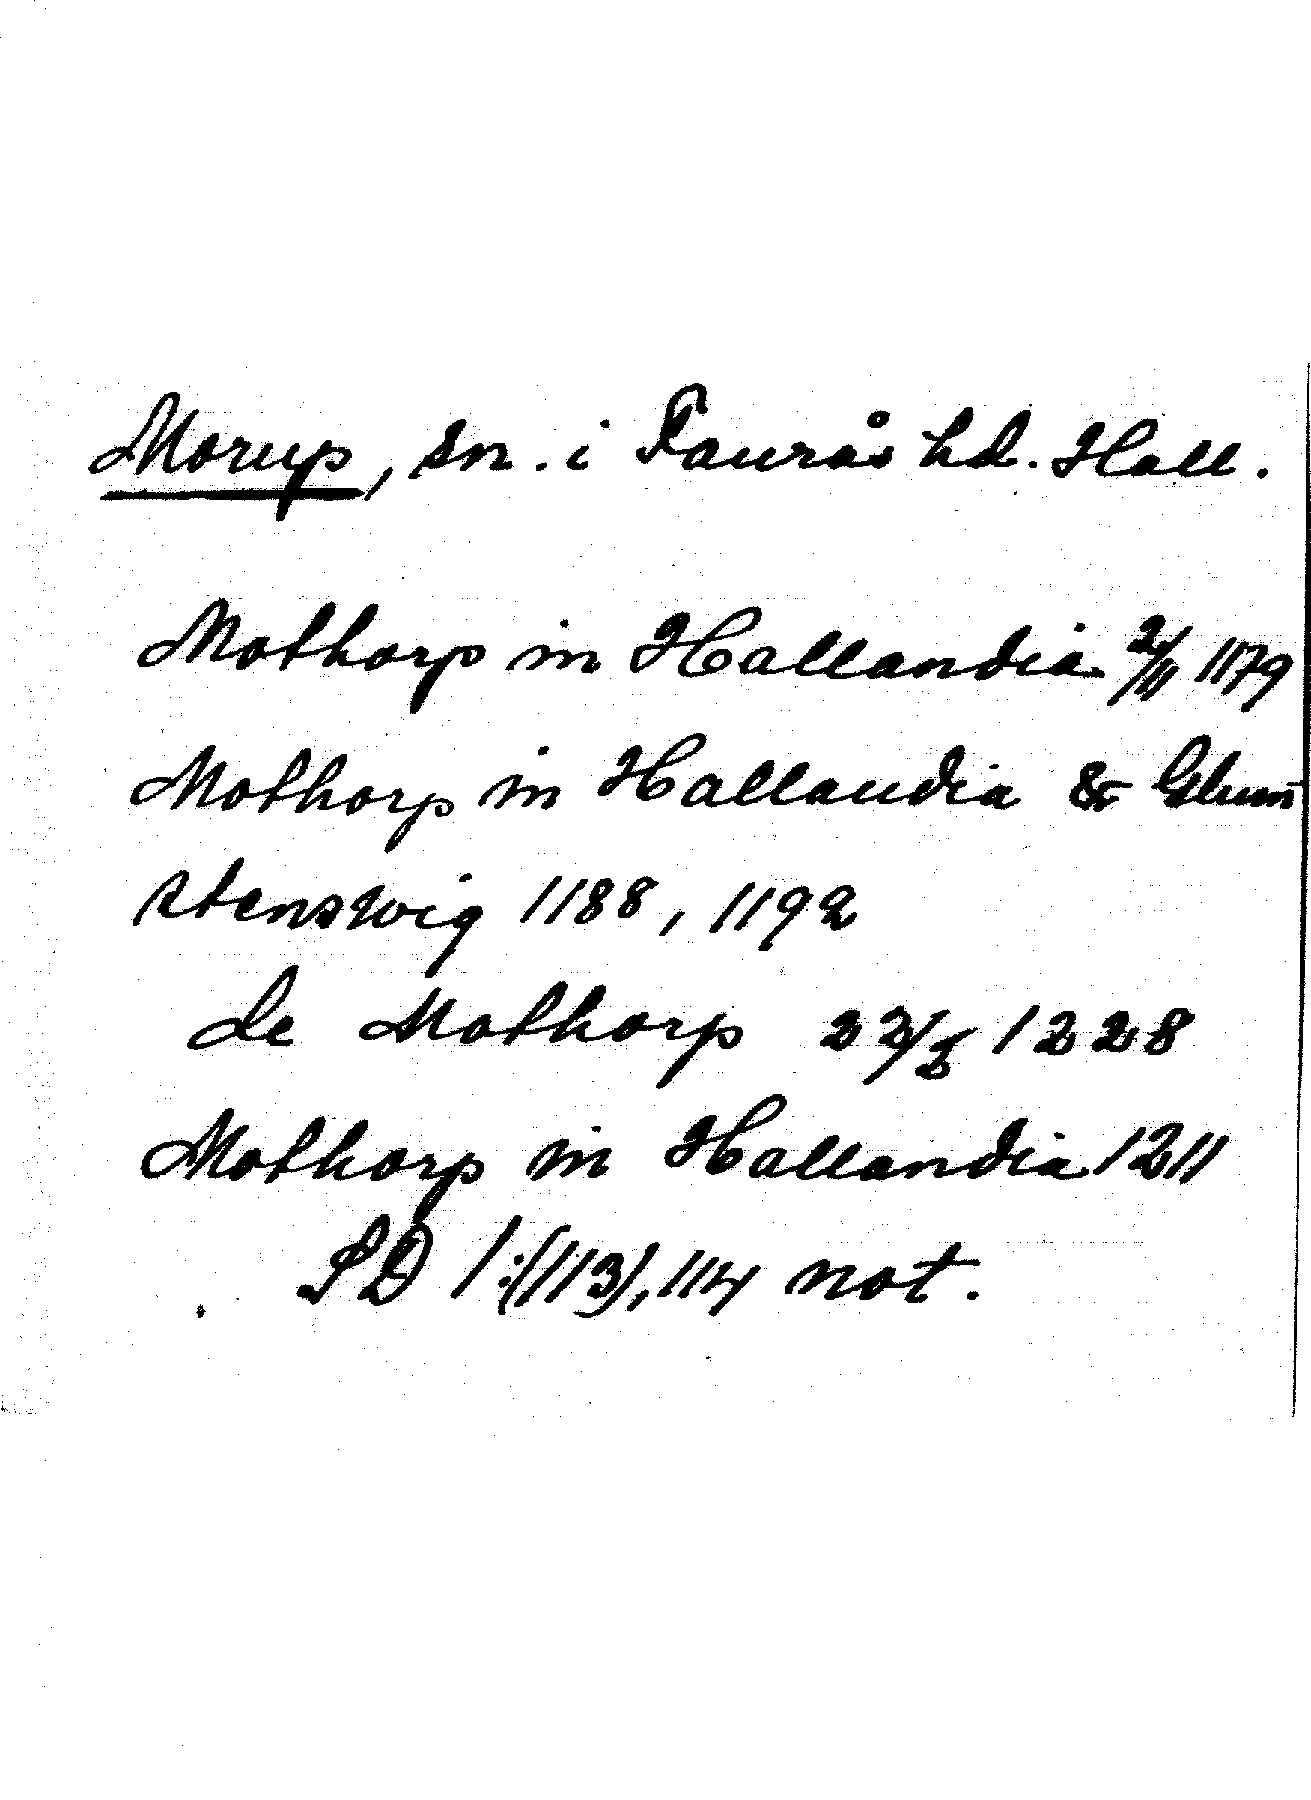 Morup, sn. i Faurås hd. Hall.
Mothorp in Hallandia 2/11 1179
Mothorp in Hallandia &
stenswig 1188, 1192
de Mothorp 1228
Mothorp in Hallandia 1211
SD 1:(113), 114 not.